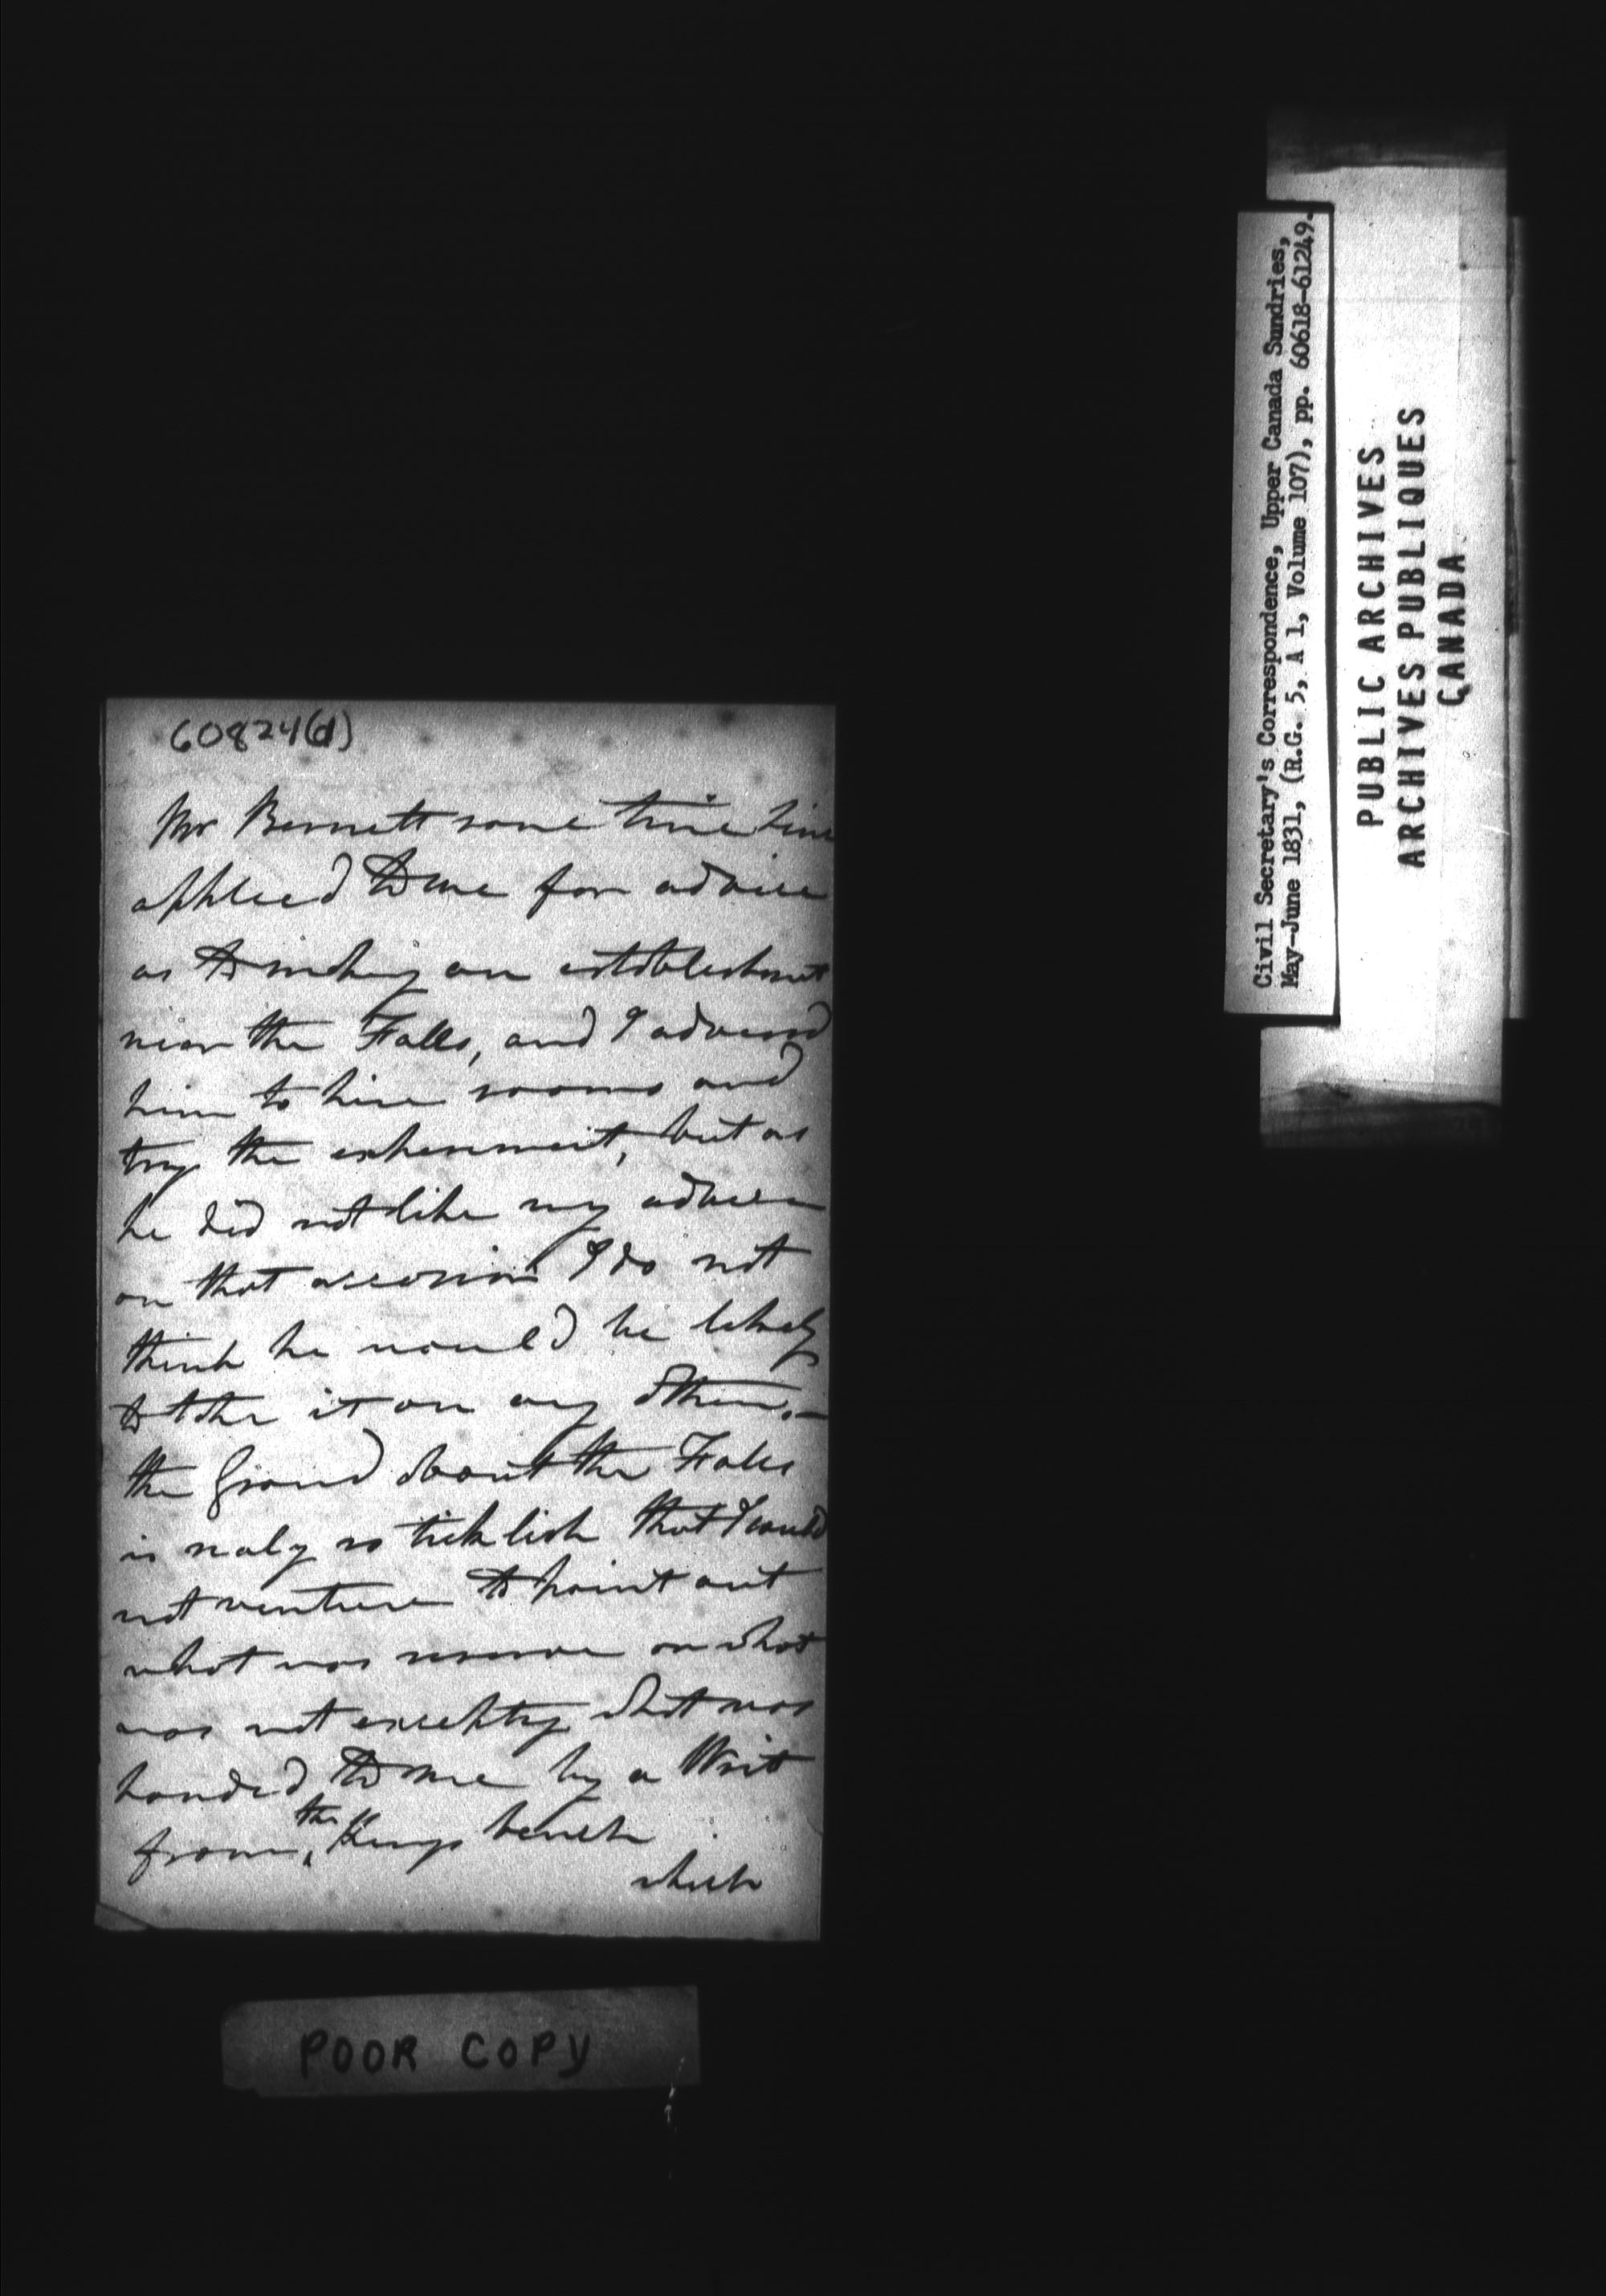 60824(d)
Mr Bennett some time since
applied to me for advice
as to making an establishment
near the Falls, and I advised
him to hire rooms and
try the experiment, but as
he did not like my advice
on that occasion I do not
think he would be likely
to take it on any other.—
the Ground about the Falls
is realy so ticklish that I would
not venture to point out
what was reserve or what
was not excepting what was
handed to me by a Writ
from the Kings bench
which
POOR COPY
Civil Secretary's Correspondence, Upper Canada Sundries,
May-June 1831, (R.G. 5, A 1, Volume 107), pp. 60618-61249.
PUBLIC ARCHIVES
ARCHIVES PUBLIQUES
CANADA